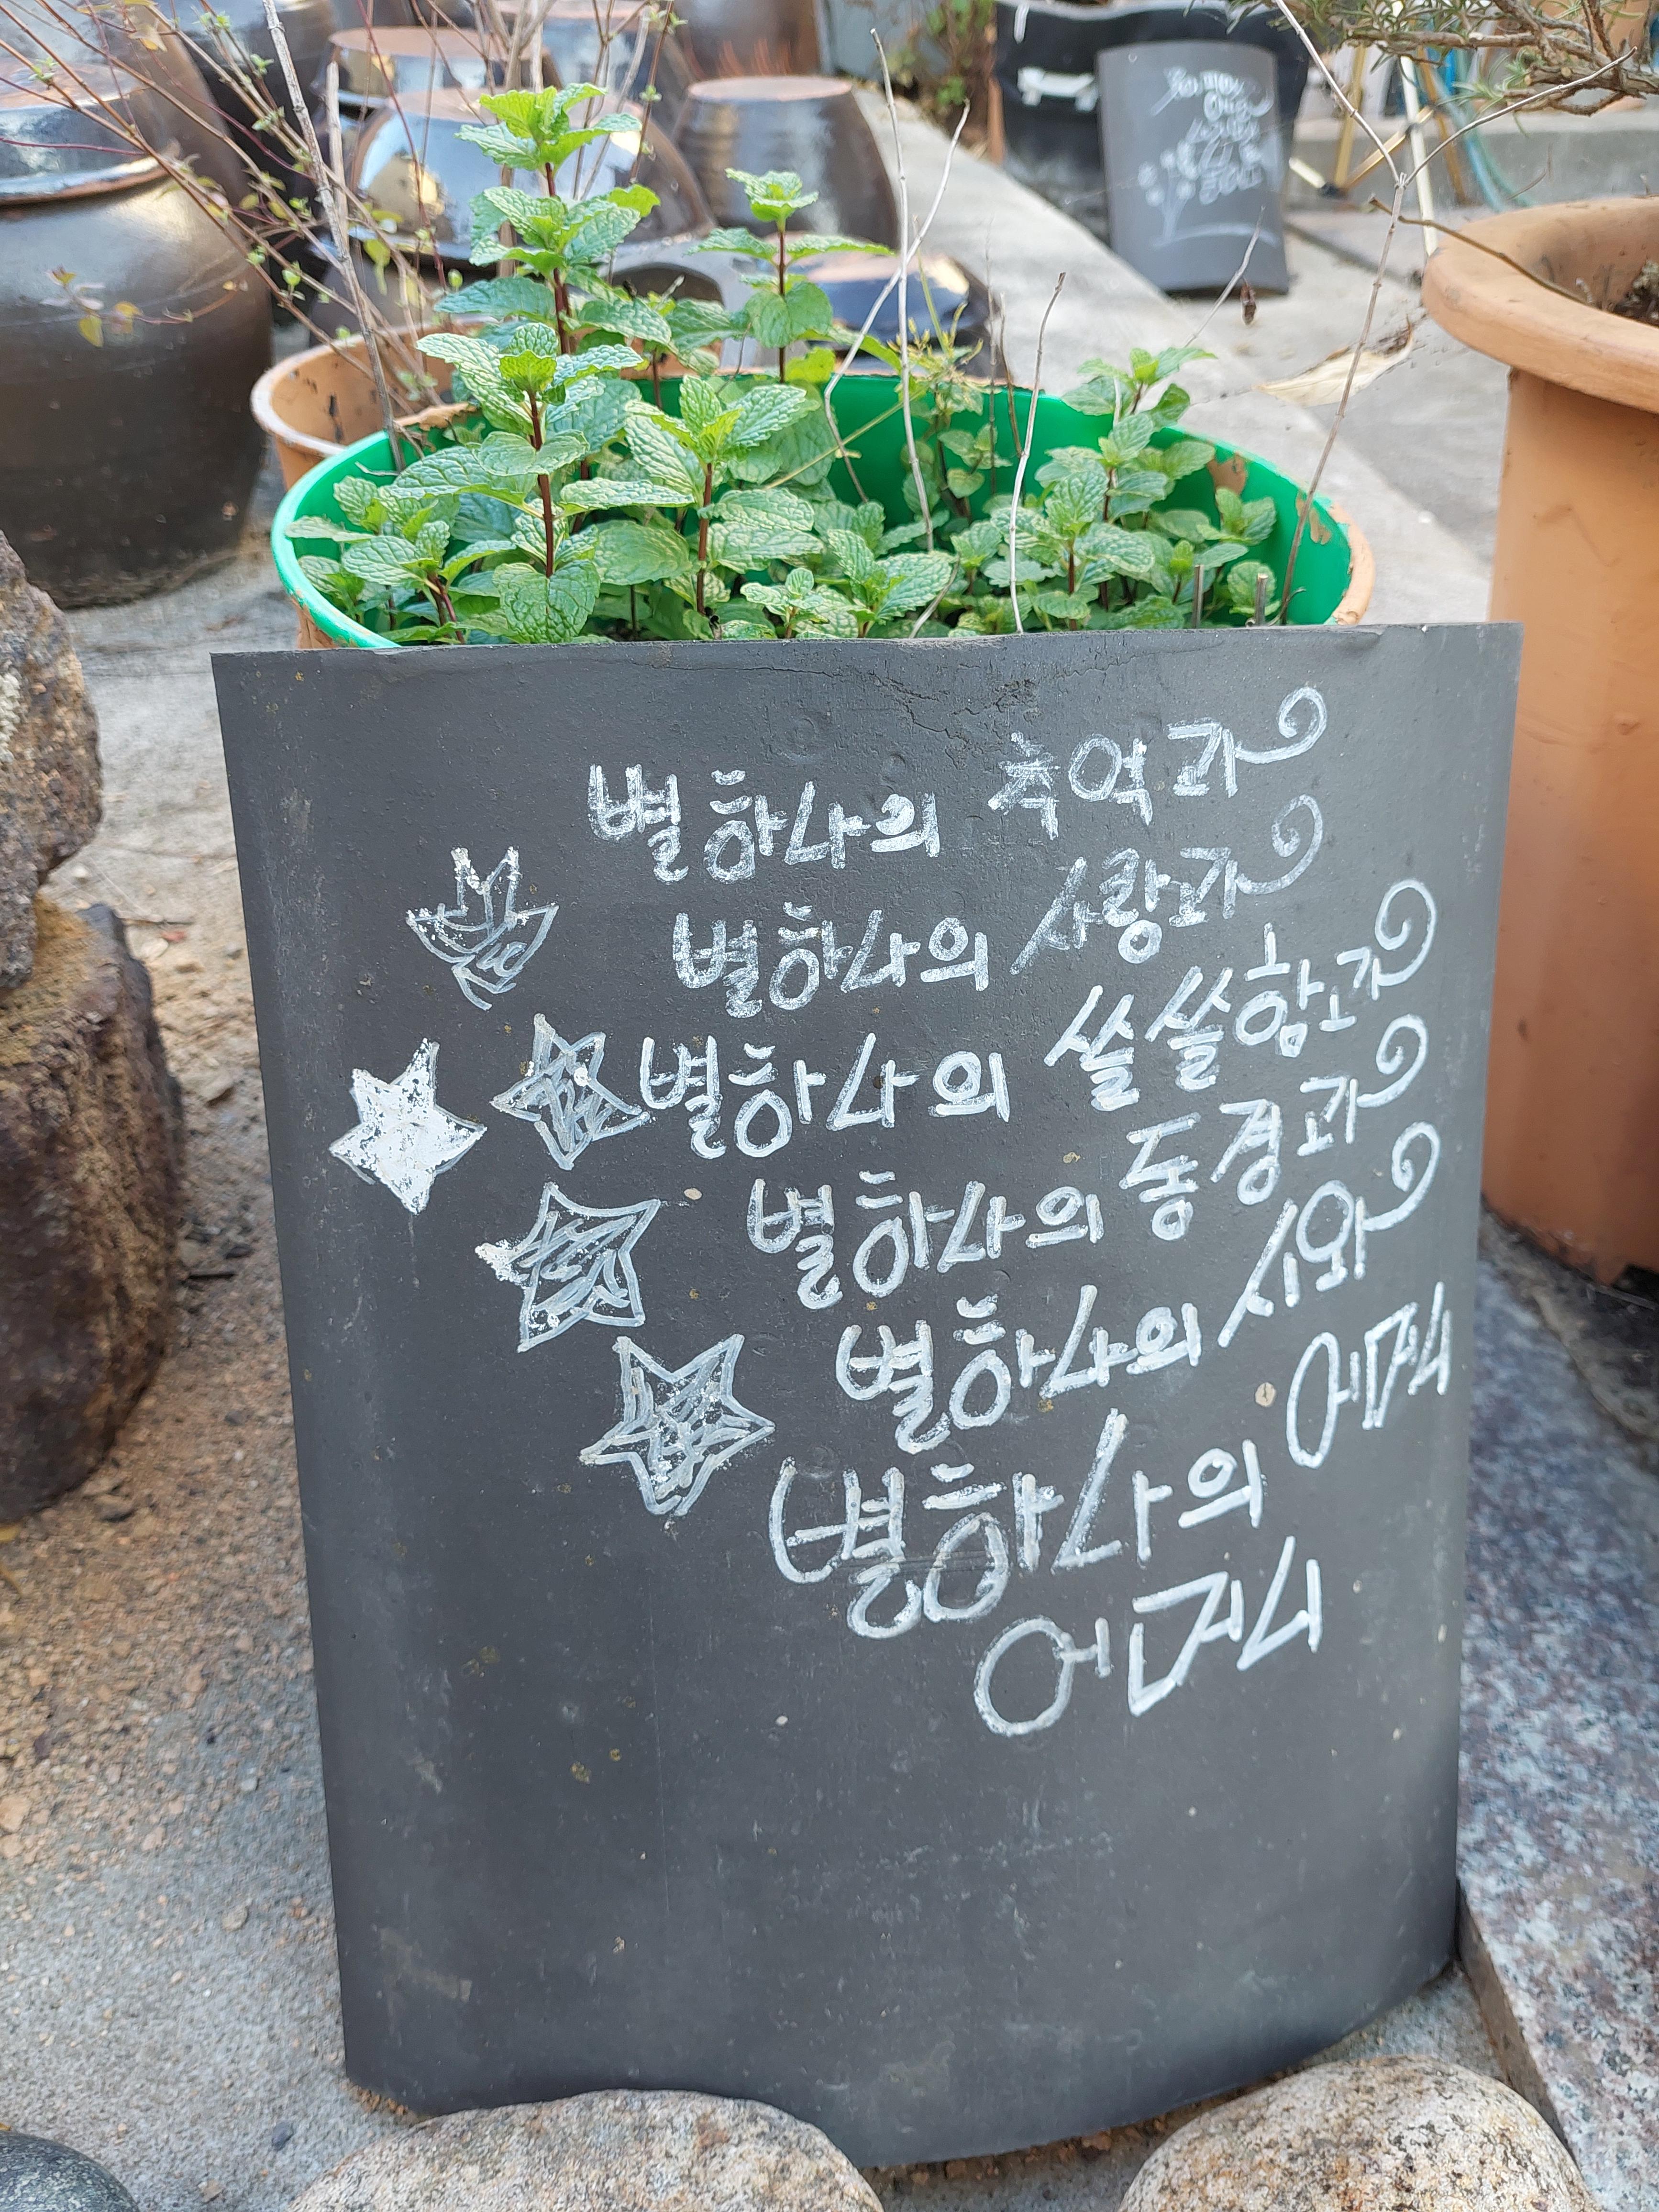 별하나의 추억과
별하나의 사랑과
별하나의 쓸쓸함과
별하나의 동경과
별하나의 시와
별하나의 어머니
어머니